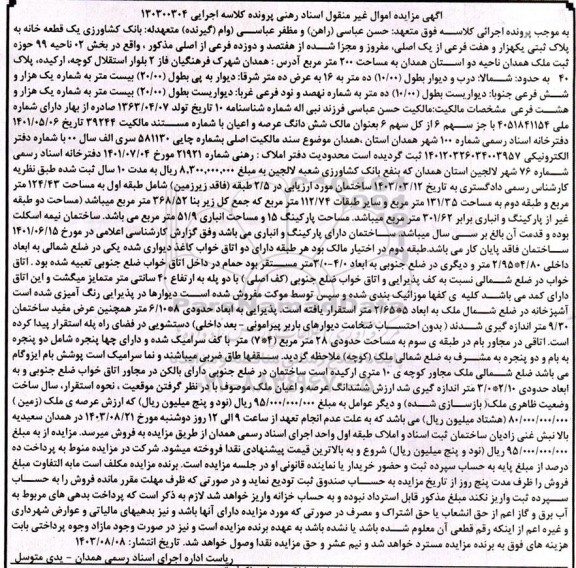 آگهی مزایده اموال غیر منقول اسناد رهنی پرونده کلاسه اجرایی ۱۳۰۳۰۰۳۰۴
به موجب پرونده اجرائی کلاسه فوق متعهد: حسن عباسی (راهن) و مظفر عباسی (وام گیرنده) متعهدله: بانک کشاورزی یک قطعه خانه به
پلاک ثبتی یکهزار و هفت فرعی از یک اصلی، مفروز و مجزا شده از هفتصد و دوزده فرعی از اصلی مذکور ، واقع در بخش ۰۲ ناحیه ۹۹ حوزه
ثبت ملک همدان ناحیه دو استان همدان به مساحت ۲۰۰ متر مربع آدرس : همدان شهرک فرهنگیان فاز ۲ بلوار استقلال کوچه، ارکیده، پلاک
۴۰ به حدود: شمالا: درب و دیوار بطول (۱۰/۰۰) ده متر به ۱۶ به عرض ده متر شرقا: دیوار به پی بطول (۲۰/۰۰) بیست متر به شماره یک هزار و
شش فرعی جنوبا: دیواریست بطول (۱۰/۰۰) ده متر به شماره نهصد و نود فرعی غربا: دیواریست بطول (۲۰/۰۰) بیست متر به شماره یک هزار و
هشت فرعی مشخصات مالکیت:مالکیت حسن عباسی فرزند نبی اله شماره شناسنامه ۱۰ تاریخ تولد ۱۳۶۳/۰۴/۰۷ صادره از بهار دارای شماره
ملی ۴۰۵۱۸۴۱۱۵۴ با جز سهم ۶ از کل سهم ۶ بعنوان مالک شش دانگ عرصه و اعیان با شماره مستند مالکیت ۳۹۲۴۴ تاریخ ۱۴۰۱/۰۵/۰۶
دفترخانه اسناد رسمی شماره ۱۰۰ شهر همدان استان ،همدان موضوع سند مالکیت اصلی بشماره چاپی ۵۸۱۱۳۰ سری الف سال ۰۰ با شماره دفتر
الکترونیکی ۱۴۰۱۲۰۳۲۶۰۳۴۰۰۳۹۵۷ ثبت گردیده است محدودیت دفتر املاک : رهنی شماره ۲۱۹۲۱ مورخ ۱۴۰۱/۰۷/۰۴ دفترخانه اسناد رسمی
شماره ۷۶ شهر لالجین استان همدان که بنفع بانک کشاورزی شعبه لالجین به مبلغ ۸,۳۰۰,۰۰۰,۰۰۰ ریال به مدت ۱۰ سال ثبت شده طبق نظریه
کارشناس رسمی دادگستری به تاریخ ۱۴۰۳/۰۳/۱۲ ساختمان مورد ارزیابی در ۲/۵ طبقه (فاقد زیرزمین) شامل طبقه اول به مساحت ۱۲۴/۴۳ متر
مربع و طبقه دوم به مساحت ۱۳۱/۳۵ متر مربع و سایر طبقات ۱۱۲/۷۴ متر مربع که جمع کل زیر بنا ۳۶۸/۵۲ متر مربع میباشد (مساحت دو طبقه
غیر از پارکینگ و انباری برابر ۳۰۱/۶۲ متر مربع میباشد. مساحت پارکینگ ۱۵ و مساحت انباری ۵۱/۹ متر مربع می باشد. ساختمان نیمه اسکلت
بوده و قدمت آن بالغ بر سی سال میباشد. ساختمان دارای پارکینگ و انباری می باشد وفق گزارش کارشناسی اعلامی در مورخ ۱۴۰۱/۰۶/۱۵
ساختمان فاقد پایان کار می باشد.طبقه دوم در اختیار مالک بود هر طبقه دارای دو اتاق خواب کاغذ دیواری شده یکی در ضلع شمالی به ابعاد
داخلی ۴/۸۰*۲/۹۵ متر و دیگری در ضلع جنوبی به ابعاد ۴/۰*۳/۰متر مستقر بود حمام در داخل اتاق خواب ضلع جنوبی تعبیه شده بود . اتاق
خواب در ضلع شمالی نسبت به کف پذیرایی و اتاق خواب ضلع جنوبی (کف اصلی) با دو پله به ارتفاع ۴۰ سانتی متر متمایز میگشت و این اتاق
دارای کمد می باشد کلیه ی کفها موزائیک بندی شده و سپس توسط موکت مفروش شده است دیوارها در پذیرایی رنگ آمیزی شده است
آشپزخانه در ضلع شمال ملک به ابعاد ۵*۲/۶۵ متر استقرار یافته است. پذیرایی به ابعاد حدودی ۸*۶/۱۰ متر همچنین عرض مفید ساختمان
۹/۳۰ متر اندازه گیری شدند (بدون احتساب ضخامت دیوارهای باربر پیرامونی - بعد داخلی) دستشویی در فضای راه پله استقرار پیدا کرده
است. اتاقی در مجاور بام در طبقه ی سوم به مساحت حدودی ۲۸ متر مربع (۴*۷) متر با کف سرامیک شده و دارای چها پنجره شامل دو پنجره
به بام و دو پنجره به مشرف به ضلع شمالی ملک (کوچه) ملاحظه گردید. سقفها طاق ضربی میباشند و نما سرامیک است پوشش بام ایزوگام
می باشد ضلع شمالی ملک مجاور کوچه ی ۱۰ متری ارکیده است ساختمان در ضلع جنوبی دارای بالکن در مجاور اتاق خواب ضلع جنوبی و به
ابعاد حدودی ۲/۱۰*۳/۰ متر اندازه گیری شد ارزش ششدانگ عرصه و اعیان ملک موصوف با در نظر گرفتن موقعیت ، نحوه استقرار، سال ساخت
وضعیت ظاهری ملک( بازسازی شده) و دیگر عوامل به مبلغ ۹۵/۰۰۰/۰۰۰/۰۰۰ ریال (نود و پنج میلیون ریال) که ارزش عرصه ی ملک (زمین)
۸۰/۰۰۰/۰۰۰/۰۰۰ (هشتاد میلیون ریال) می باشد که به علت عدم انجام تعهد از ساعت ۹ الی ۱۲ روز دوشنبه مورخ ۱۴۰۳/۰۸/۲۱ در همدان سعیدیه
بالا نبش غنی زادیان ساختمان ثبت اسناد و املاک طبقه اول واحد اجرای اسناد رسمی همدان از طریق مزایده به فروش میرسد. مزایده از به مبلغ
۹۵/۰۰۰/۰۰۰/۰۰۰ ریال (نود و پنج میلیون ریال) شروع و به بالاترین قیمت پیشنهادی نقدا فروخته میشود. شرکت در مزایده منوط به پرداخت ده
درصد از مبلغ پایه به حساب سپرده ثبت و حضور خریدار یا نماینده قانونی او در جلسه مزایده است. برنده مزایده مکلف است مابه التفاوت مبلغ
فروش را ظرف مدت پنج روز از تاریخ مزایده به حساب صندوق ثبت تودیع نماید و در صورتی که ظرف مهلت مقرر مانده فروش را به حساب
سپرده ثبت واریز نکند مبلغ مذکور قابل استرداد نبوده و به حساب خزانه واریز خواهد شد لازم به ذکر است که پرداخت بدهی های مربوط به
آب برق و گاز اعم از حق انشعاب یا حق اشتراک و مصرف در صورتی که مورد مزایده دارای آنها باشد و نیز بدهیهای مالیاتی و عوارض شهرداری
و غیره اعم از اینکه رقم قطعی آن معلوم شده باشد یا نشده باشد به عهده برنده مزایده است و نیز در صورت وجود مازاد وجوه پرداختی بابت
هزینه های فوق به برنده مزایده مسترد خواهد شد و نیم عشر و حق مزایده نقدا وصول خواهد شد. تاریخ انتشار: ۱۴۰۳/۰۸/۰۸
ریاست اداره اجرای اسناد رسمی همدان - یدی متوسل